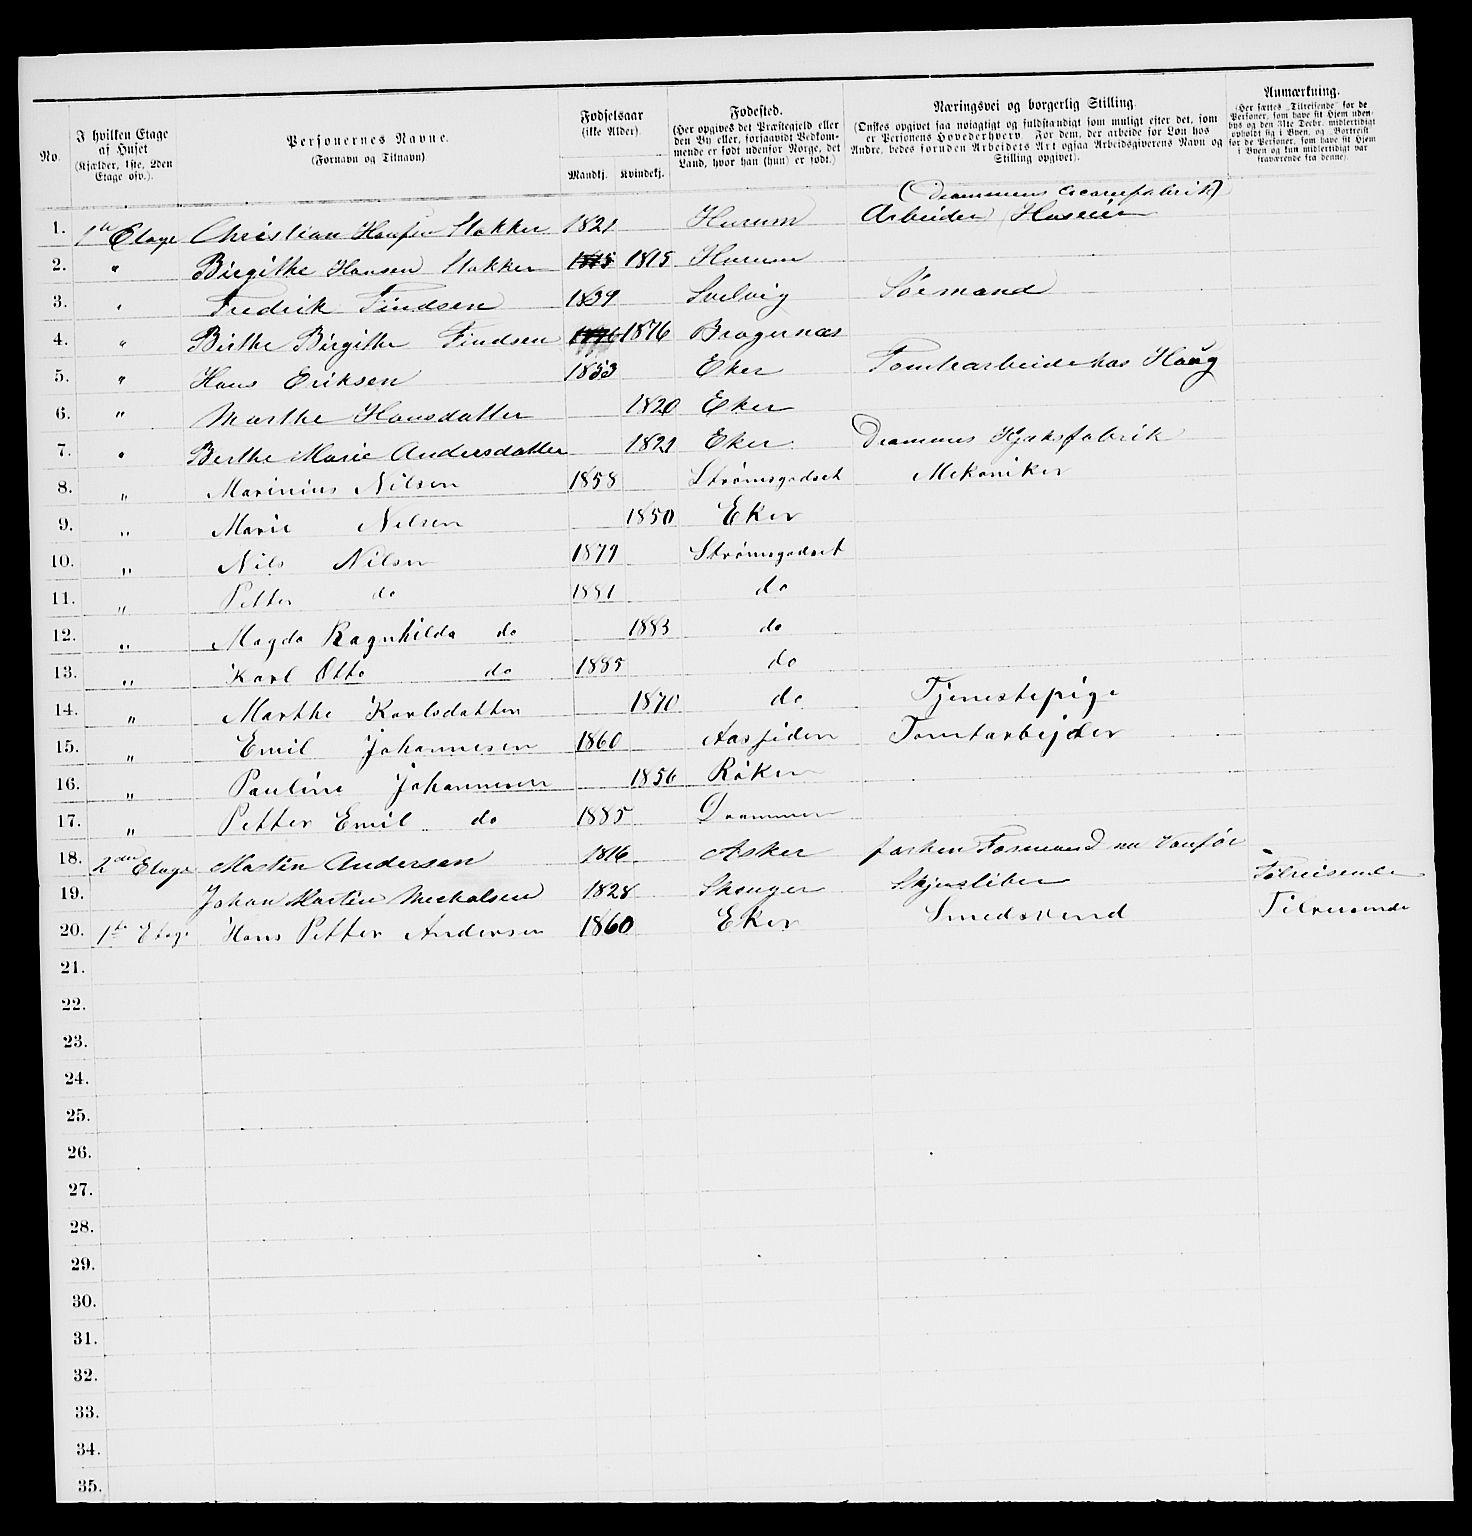 No.
I hvilken Etage af Huset (Kjælder, 1ste, 2den Etage osv.).
Personernes Navne. (Fornavn og Tilnavn)
Fødselsaar (ikke Alder). Mandkj. Kvindekj.
Fødested. (Her opgives det Præstegjeld eller den By eller, forsaavidt Vedkommende er født udenfor Norge, det Land, hvor han (hun) er født.)
Næringsvei og borgerlig Stilling. (Ønskes opgivet saa nøiagtigt og fuldstændigt som muligt efter det, som er Personens Hovederhverv. For dem, der arbeide for Løn hos Andre, bedes foruden Arbeidets Art ogsaa Arbeidsgiverens Navn og Stilling opgivet).
Anmærkning. (Her sættes „Tilreisende" for de Personer, som have sit Hjem udenbys og den 31te Decbr. midlertidigt opholdt sig i Byen, og „Bortreist" for de Personer, som have sit Hjem i Byen og kun midlertidigt var fraværende fra denne).
(Drammens fabrik)
1. 1te Etage Christian Hansen Stokker 1821 Hurum Arbeider Huseier
2. " Birgithe Hansen Stokker 1815 1815 Hurum
3. " Fredrik Findsen 1839 Svelvig Søemand
4. " Birthe Birgithe Findsen 1876 1876 Bragernæs
5. " Hans Eriksen 1853 Eker Tomtearbeide hos Haug
6. " Marthe Hansdatter 1820 Eker
7. " Berthe Marie Andersdatter 1821 Eker Drammens fabrik
8. " Marinius Nilsen 1858 Strømsgodset Mekaniker
9. " Marie Nilsen 1850 Eker
10. " Nils Nilsen 1879 Strømsgodset
11. " Petter do 1881 do
12. " Magda Ragnhilda do 1883 do
13. " Karl Otto do 1885 do
14. " Marthe Karlsdatter 1870 do Tjenestepige
15. " Emil Johannesen 1860 Aassiden Tomtarbejder
16. " Pauline Johannesen 1856 Røken
17. " Petter Emil do 1885 Drammen
18. 2den Etage Martin Andersen 1816 Asker
19. Johan Martin Mechalsen 1828 Skouger Tilreisende
20. 1te Etage Hans Petter Andersen 1860 Eker Smedsvend Tilreisende
21.
22.
23.
24.
25.
26.
27.
28.
29.
30.
31.
32.
33.
34.
35.